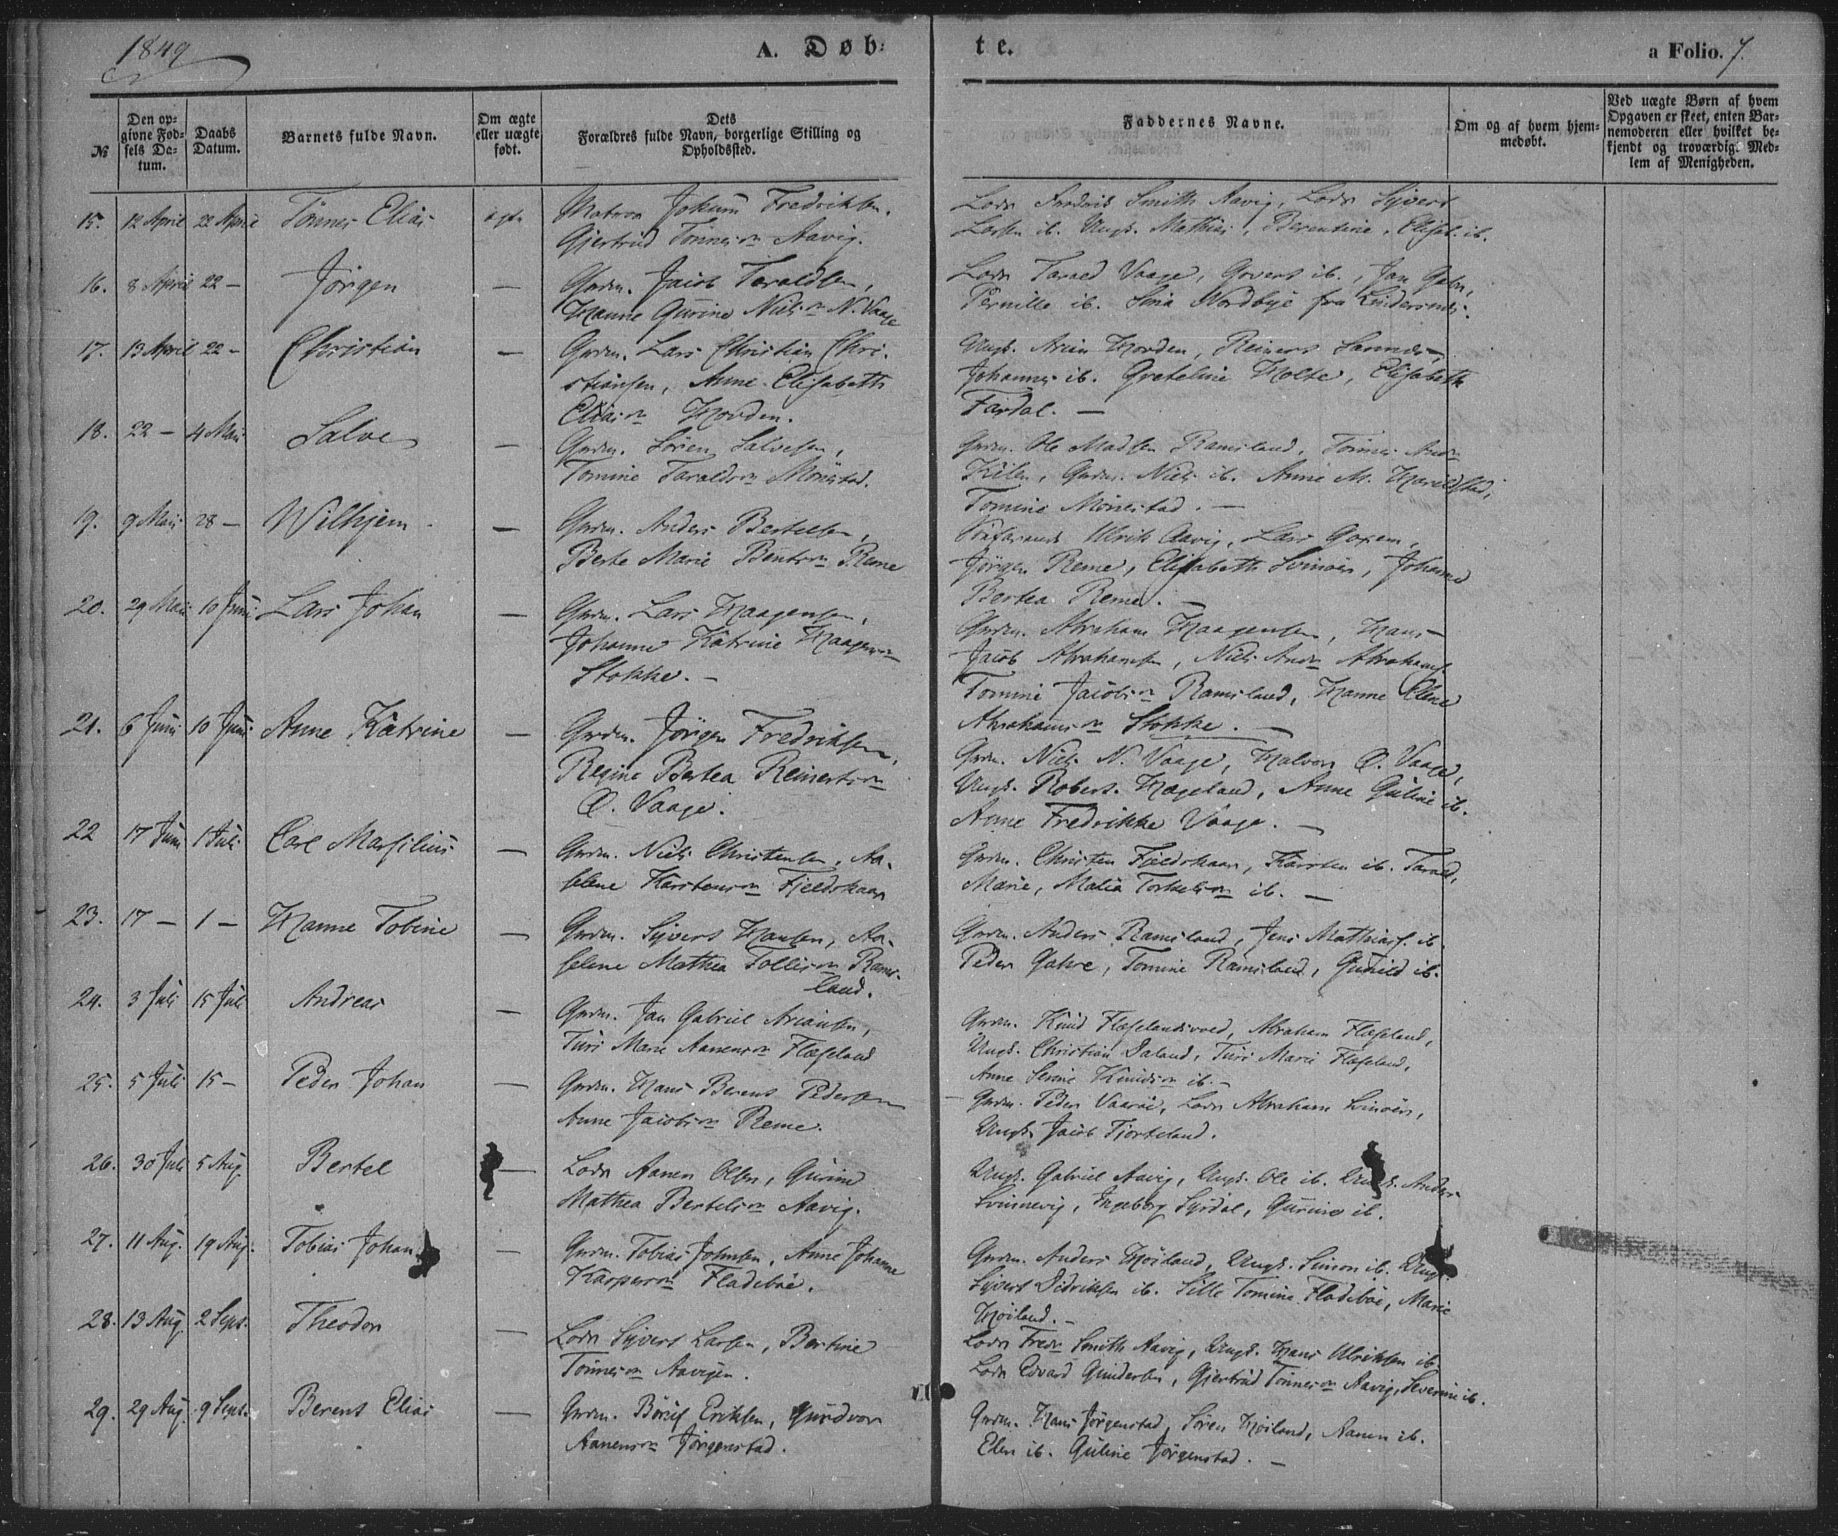 1849
A. Døb-
te.
a Folio. 7.
№
Den op-
givne Fød-
sels Da-
tum.
Daabs
Datum.
Barnets fulde Navn.
Om ægte
eller uægte
født.
Dets
Forældres fulde Navn, borgerlige Stilling og
Opholdssted.
Faddernes Navne.
Om og af hvem hjem-
medøbt.
Ved uægte Børn af hvem
Opgaven er skeet, enten Bar-
nemoderen eller hvilket be-
kjendt og troværdig Med-
lem af Menigheden.
15. 12 April 22 April Tönnes Elias ægte Matros Jokum Fredriksen,
Gjertrud Tönnesdn Aavig.
Lods Fredrik Smith Aavig, Lods Syvert
Larsen ib. Ungk. Mathias, Berentine, Elisab. ib.
16. 8 April 22 — Jörgen — Grdm. Jacob Taraldsen,
Hanne Gurine Nielsdn N. Vaage
Lods Tarald Vaage, Govert ib., Jan Gabr.,
Pernille ib. Sina Nordbye fra Lindesnes.
17. 13 April 22 — Christian — Grdm. Lars Christian Chri-
stiansen, Anne Elisabeth
Eliasdn Hovden.
Ungk. Arian Hovden, Reinert Sannes
Johannes ib. Greteline Holte, Elisabeth
Fardal. —
18. 22 — 4 Mai Salve — Grdm. Sören Salvesen,
Tomine Taraldsdn Mönestad.
Grdm. Ole Madsen Ramsland, Tönnes Andr.
Kilen, Grdm. Niels ib. Anne M. Haraldstad,
Tomine Mönestad. —
19. 9 Mai 28 — Wilhjem — Grdm. Anders Bertelsen,
Berte Marie Bentsdn Reme
Söefarende Ulrik Aavig, Lars Goxem,
Jörgen Reme, Elisabeth Svinöer, Johanne
Bertea Reme. —
20. 29 Mai 10 Juni Lars Johan — Grdm. Lars Haagensen,
Johanne Katrine Haagensdn
Stokke. —
Grdm. Abraham Haagensen, Hans
Jacob Abrahamsen, Niels Andr. Abrahams.
Tomine Jacobsdn Ramsland, Hanne Elene
Abrahamsdn Stokke. —
21. 6 Juni 10 Juni Anne Katrine — Grdm. Jörgen Fredriksen,
Regine Bertea Reinertsdn
Ö. Vaage.
Grdm. Niels N. Vaage, Halvor Ö. Vaage,
Ungk. Robert Hægeland, Anne Guline ib.
Anne Fredrikke Vaage. —
22 17 Juni 1 Juli Carl Marsilius — Grdm. Niels Christensen, Aa-
selene Karstensdn Fjeldskaar
Grdm. Christen Fjeldskaar, Karsten ib. Tarald,
Marie, Malia Torkelsdn ib. —
23. 17 — 1 — Hanne Tobine — Grdm. Syvert Hansen, Aa-
selene Mathea Tollisdn Rams-
land.
Grdm. Anders Ramsland, Jens Matthias. ib.
Peder Gahre, Tomine Ramsland, Gunild ib.
24. 3 Juli 15 Juli Andreas — Grdm. Jan Gabriel Ariansen,
Turi Marie Aanensdn Flæseland
Grdm. Knud Flæselandsvoed, Abraham Flæseland,
Ungk. Christian Daland, Turi Marie Flæseland,
Anne Serine Knudsdn ib. —
25. 5 Juli 15 — Peder Johan — Grdm. Hans Berent Pedersen
Anne Jacobsdn Reme.
— Grdm. Peder Vaaröe, Lods Abraham Svinöer,
Ungk. Jacob Tjorteland.
26. 30 Juli 5 Aug. Bertel — Lods Aanen Olsen, Gurine
Mathea Bertelsdn Aavig.
Ungk. Gabriel Aavig, Ungk. Ole ib. Ungk. Anders
Svinnevig, Ingeborg Syrdal, Gurine ib.
27. 11 Aug. 19 Aug. Tobias Johan — Grdm. Tobias Johnsen, Anne Johanne
Kaspersdn Fladeböe.
Grdm. Anders Höiland, Ungk. Simon ib. Ungk.
Syvert Didriksen ib. Sille Tomine Fladeböe, Marie
Höiland. —
28. 13 Aug. 2 Sept. Theodor — Lods Syvert Larsen, Bertine
Tönnesdn Aavigen.
Lods Fredr. Smith Aavig, Ungk. Hans Ulriksen ib.
Lods Edvard Gundersen, Gjertrud Tönnesdn Aavig, Severine ib.
29. 29 Aug. 9 Sept. Berent Elias — Grdm. Börüf Eriksen, Gundvor
Aanensdn Jörgenstad.
Grdm. Hans Jörgenstad, Sören Höiland, Aanen ib.
Elen ib. Guline Jörgenstad. —